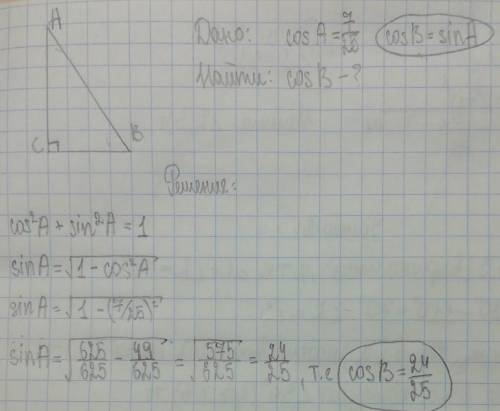 A
C
B
Дано: cos A = 7/25 cosB = sinA
Найти: cosB - ?
Решение:
cos²A + sin²A = 1
sinA = √(1 - cos²A)
sinA = √(1 - (7/25)²)
sinA = √(625/625 - 49/625) = √(575/625) = 24/25, т.е cosB = 24/25